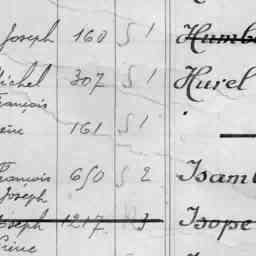 Joseph 160 S 1 Humb
Michel 307 S 1 Hurel
François
161 S 1
François 650 S 2 Isamb
Joseph
Joseph 1217 3 Isope